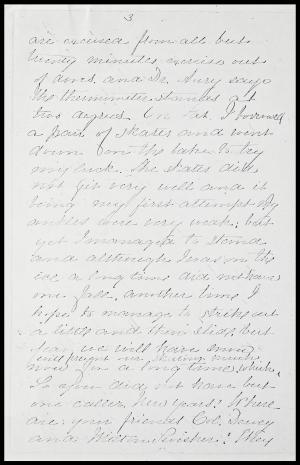 3
are excused from all but
twenty minutes exercise out
of doors, and Dr. Avery says
the thermometer stands at
two degrees. On Sat. I borrowed
a pair of skates and went
down on the lake to try
my luck. The skates did
not fit very well and it
being my first attempt my
ankles were very weak; but
yet I managed to stand
and although I was on the
ice a long time did not have
one fall. another time I
hope to manage to strike out
a little and then slide, but
fear we will have snow
now for a long time, which
will prevent our skating much.
So you did not have but
one caller New Years? Where
are your friends Col. Dewey
and